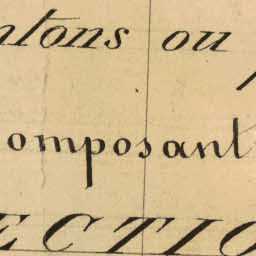 ntons ou
omposant
ECTIO